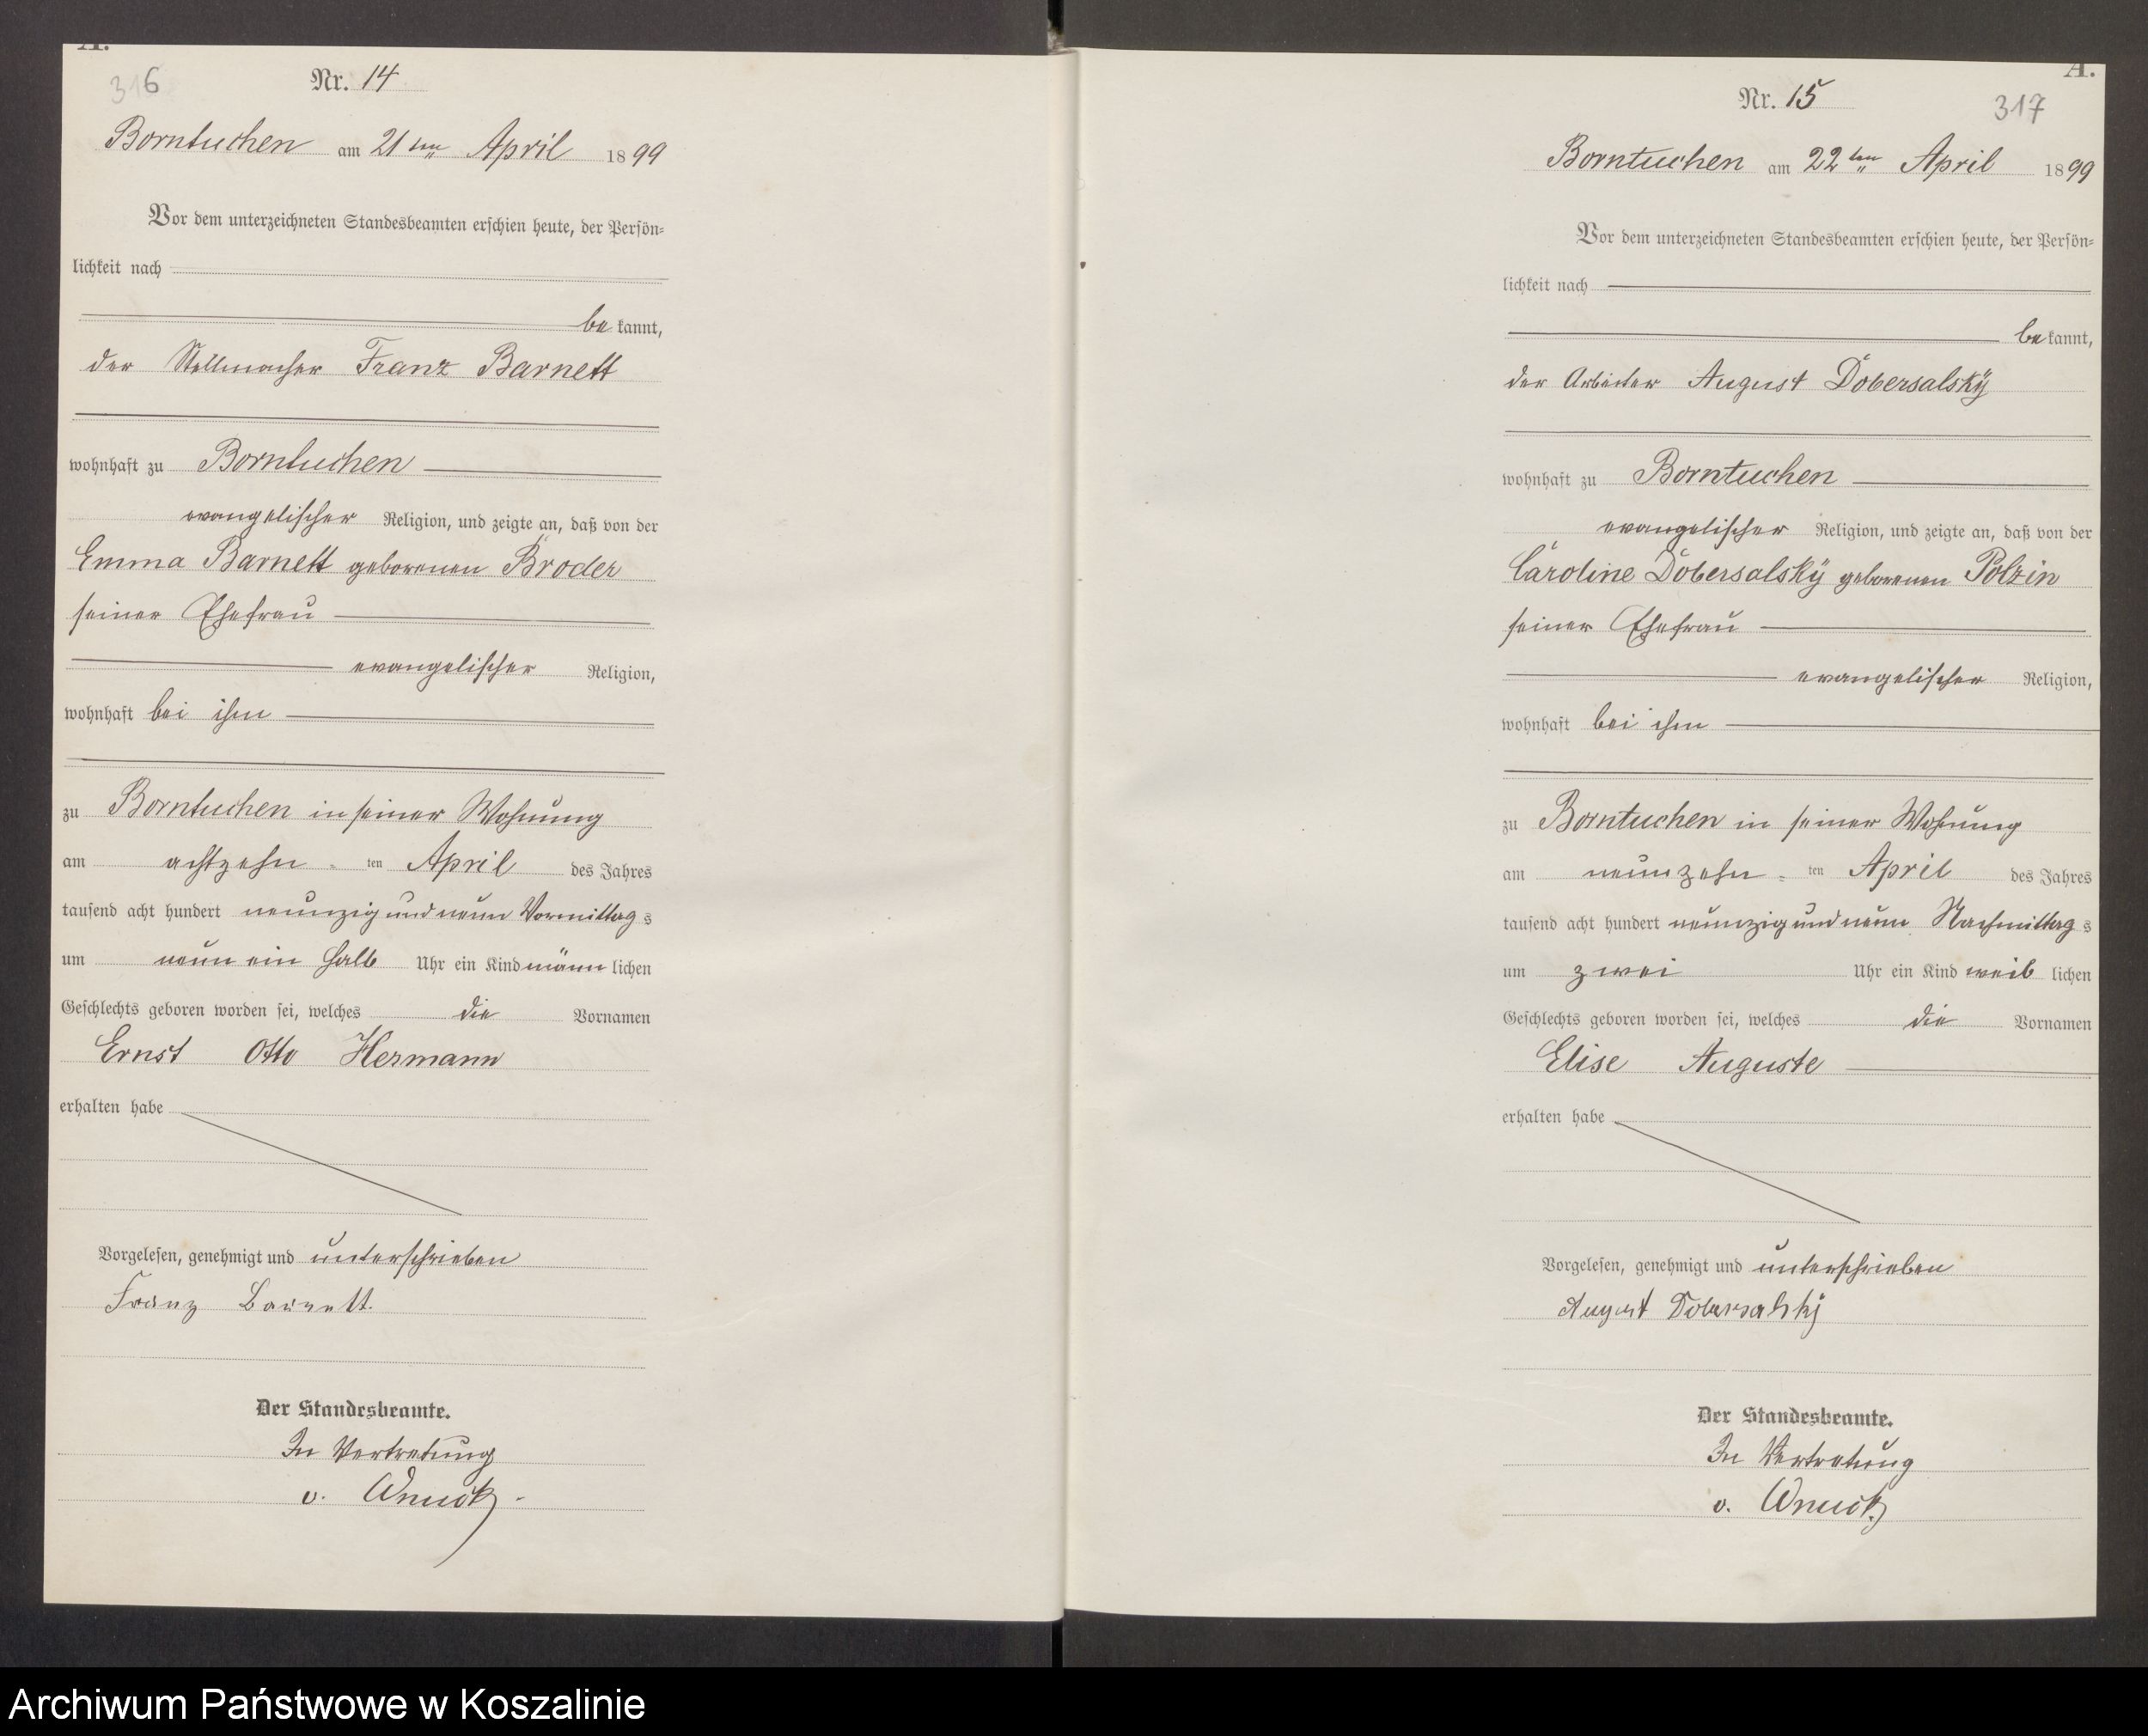 A.
316
Nr. 14
Borntuchen am 21ten April 1899
Vor dem unterzeichneten Standesbeamten erschien heute, der Persön-
lichkeit nach
bekannt,
der Stellmacher Franz Barnett
wohnhaft zu Borntuchen
evangelischer Religion, und zeigte an, daß von der
Emma Barnett geborenen Bröder
seiner Ehefrau
evangelischer Religion,
wohnhaft bei ihm
zu Borntuchen in seiner Wohnung
am achtzehn-ten April des Jahres
tausend acht hundert neunzig und neun Vormittags
um neun ein halb Uhr ein Kind männlichen
Geschlechts geboren worden sei, welches die Vornamen
Ernst Otto Hermann
erhalten habe
Vorgelesen, genehmigt und unterschrieben
Franz Barnett.
Der Standesbeamte.
In Vertretung
v.
A.
317
Nr. 15
Borntuchen am 22ten April 1899
Vor dem unterzeichneten Standesbeamten erschien heute, der Persön-
lichkeit nach
bekannt,
der Arbeiter August Dobersalsky
wohnhaft zu Borntuchen
evangelischer Religion, und zeigte an, daß von der
Caroline Dobersalsky geborenen Polzin
seiner Ehefrau
evangelischer Religion,
wohnhaft bei ihm
zu Borntuchen in seiner Wohnung
am neunzehn-ten April des Jahres
tausend acht hundert neunzig und neun Nachmittags
um zwei Uhr ein Kind weiblichen
Geschlechts geboren worden sei, welches die Vornamen
Elise Auguste
erhalten habe
Vorgelesen, genehmigt und unterschrieben
August Dobersalsky
Der Standesbeamte.
In Vertretung
v.
Archiwum Państwowe w Koszalinie